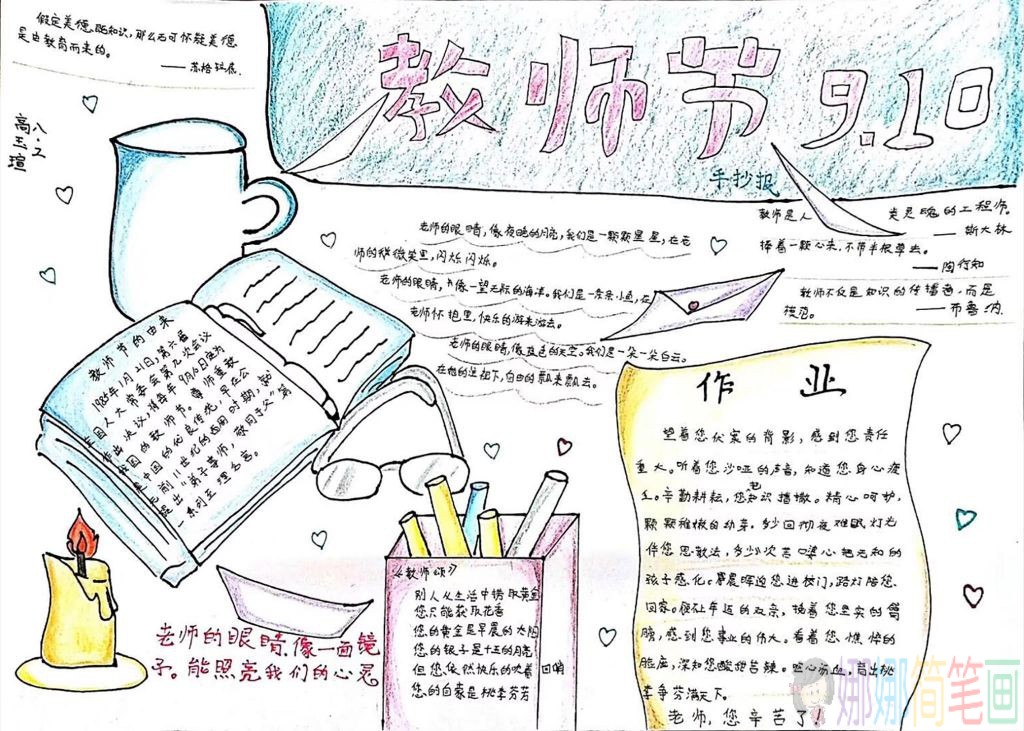 假定美德既知识,那么无可怀疑美德
是由教育而来的。
——苏格拉底
八.2
高玉瑄
教师节 9.10
手抄报
教师是人类灵魂的工程师。
——斯大林
捧着一颗心来,不带半根草去。
——陶行知
教师不仅是知识的传播者,而是
模范。
——布鲁纳
老师的眼睛,像夜晚的月亮,我们是一颗颗星星,在老
师的微微笑里,闪烁闪烁。
老师的眼睛,像一望无际的海洋。我们是一条条小鱼,在
老师怀抱里,快乐的游来游去。
老师的眼睛,像蓝色的天空。我们是一朵一朵白云。
在他的注视下,自由的飘来飘去。
教师节的由来
1985年1月21日,第六届
全国人大常委会第九次会议
作出决议,将每年9月10日定为
我国的教师节。尊师重教
是中国的优良传统,早在公
元前11世纪的西周时期,就
提出"弟子事师,敬同于父"等
一系列至理名言。
作业
望着您伏案的背影,感到您责任
重大。听着您沙哑的声音,知道您身心疲
工。辛勤耕耘,您把知识播撒。精心呵护,
颗颗稚嫩的幼芽。多少回彻夜难眠,灯光
伴您思教法,多少次苦口婆心把无知的
孩子感化。晨晖迎您进校门,路灯陪您
回家。
膀,感到您事业的伟大。看着您憔悴的
脸庞,深知您酸甜苦辣。呕心沥血,育出桃
李争芬满天下。
老师,您辛苦了!
《教师颂》
别人从生活中捞取黄金
您只能获取花香
您的黄金是早晨的太阳
您的银子是十五的月亮
但您依然快乐的吹着口哨
您的白家是桃李芬芳
老师的眼睛,像一面镜
子。能照亮我们的心灵
娜娜简笔画